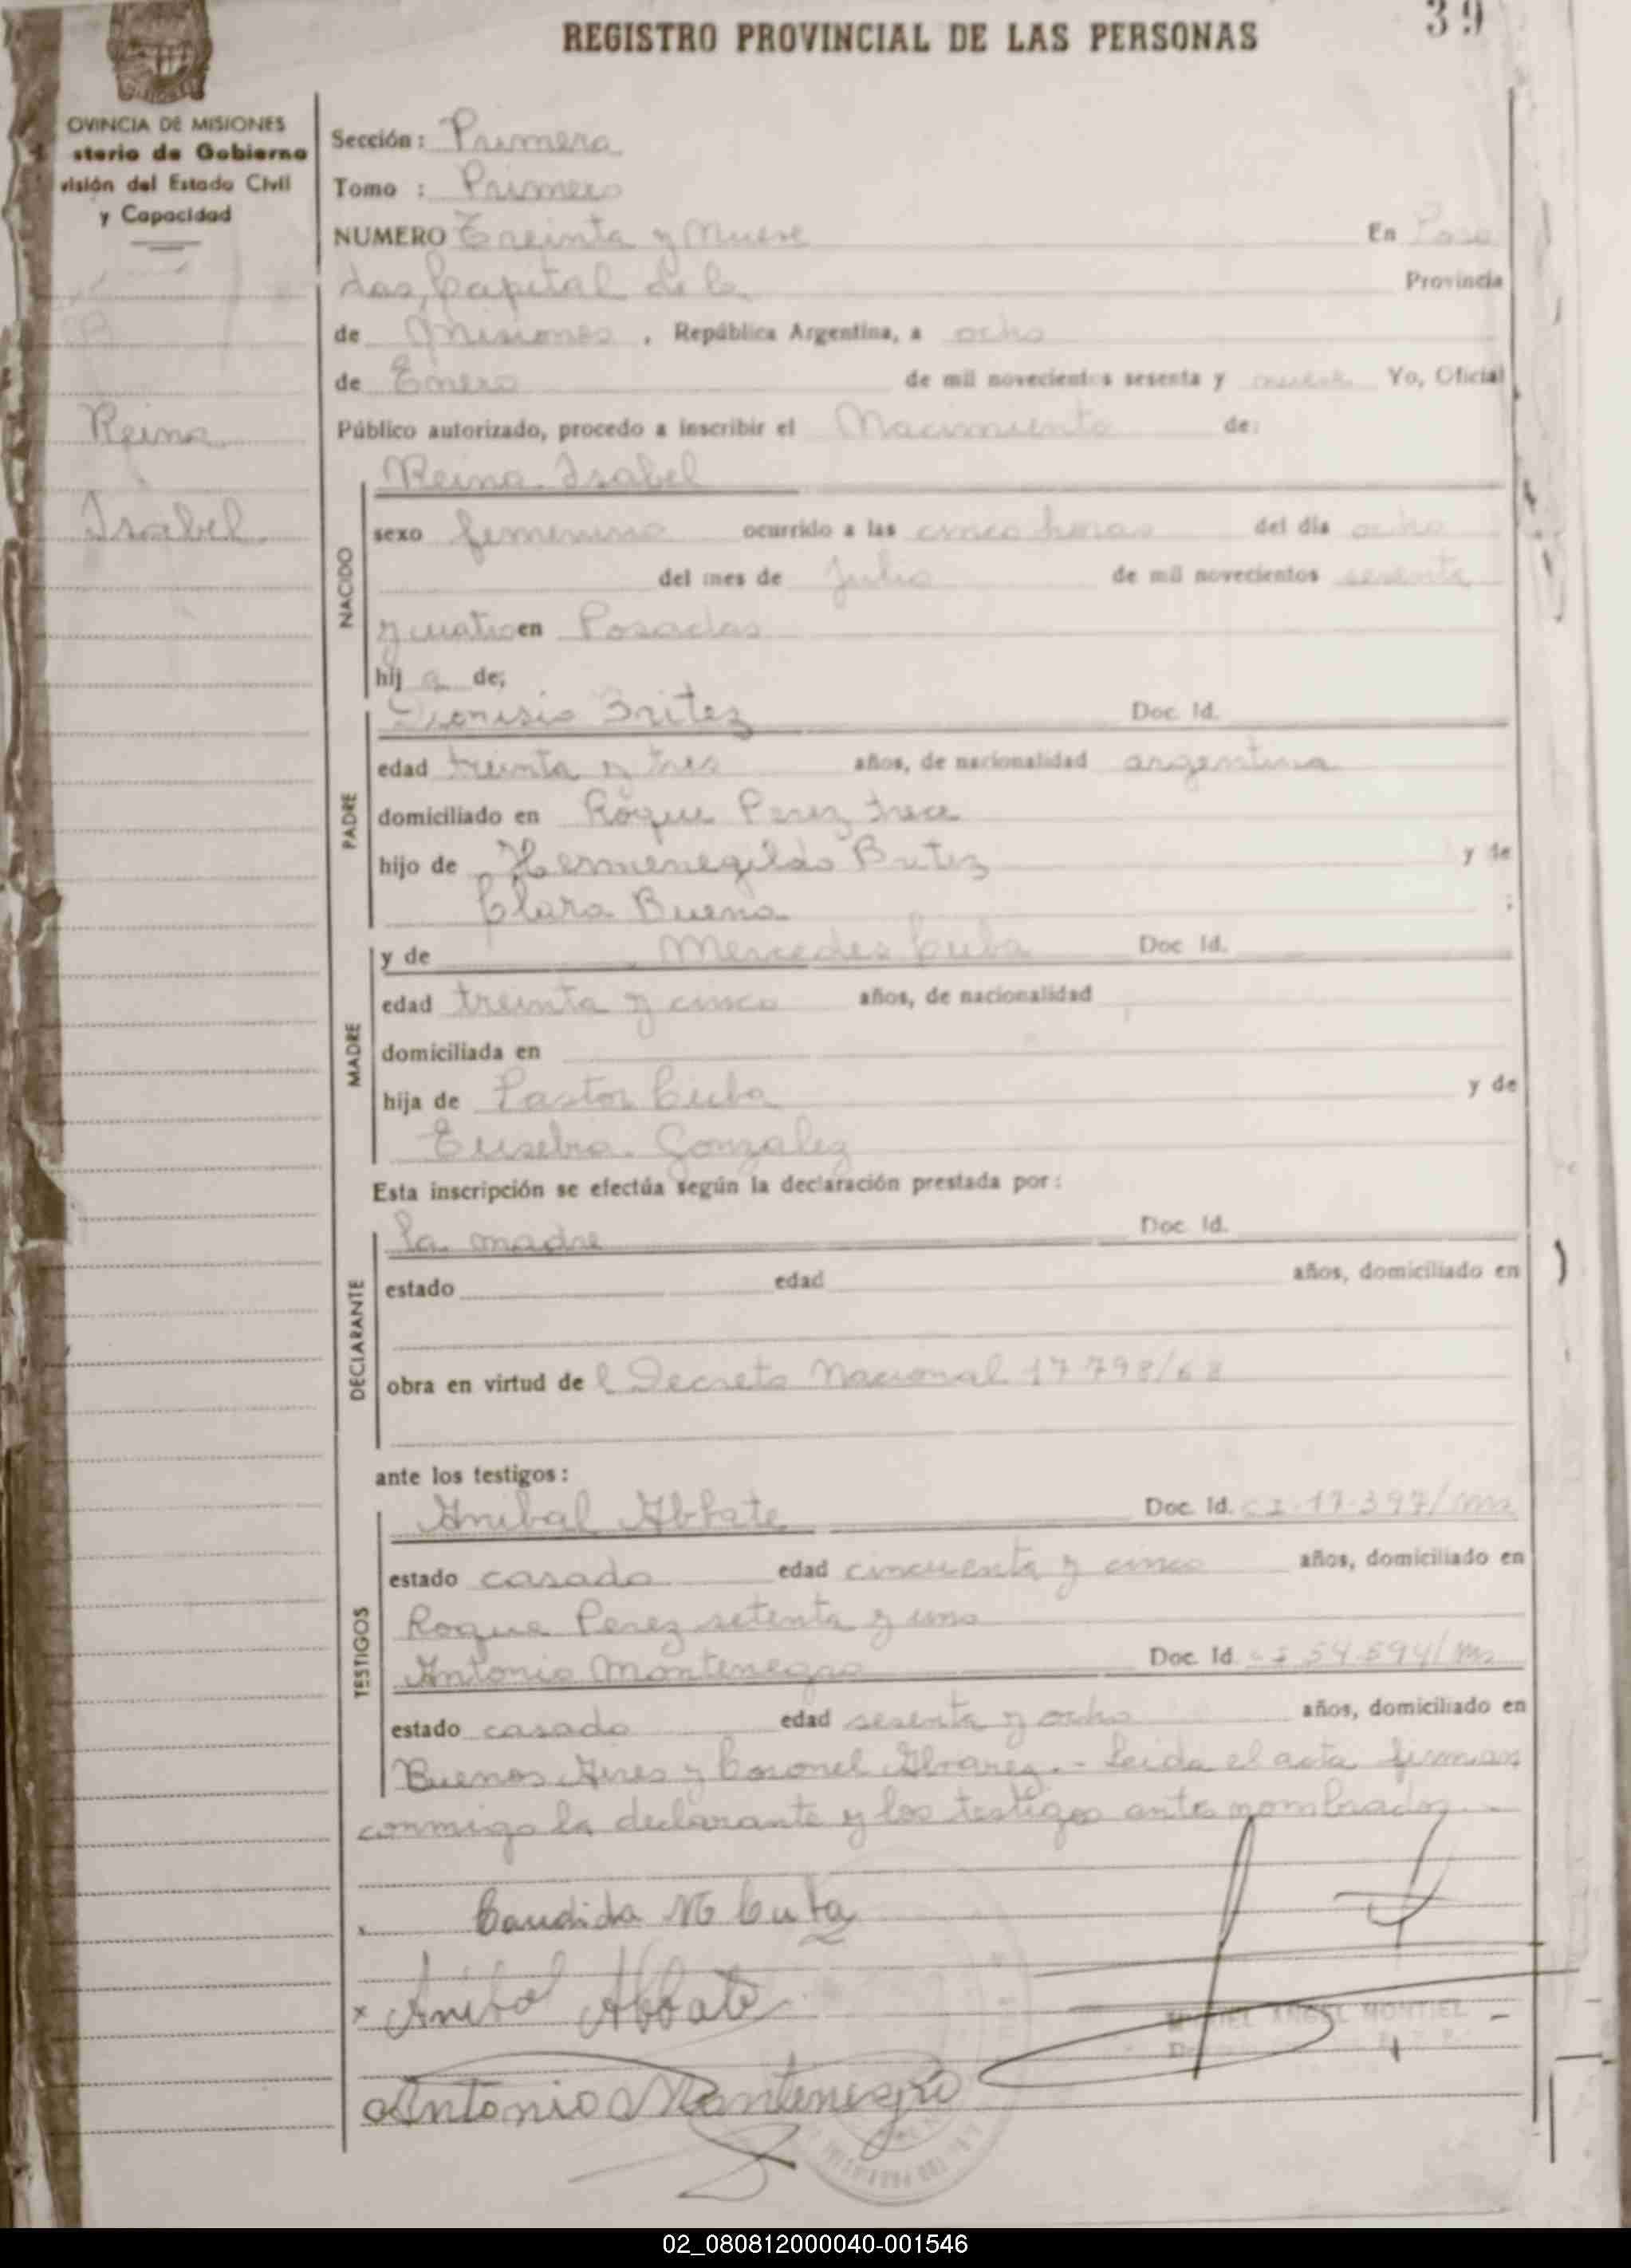 REGISTRO PROVINCIAL DE LAS PERSONAS
39
OVINCIA DE MISIONES
sterio de Gobierno
visión del Estado Civil
y Capacidad
Sección: Primera
Tomo : Primero
NUMERO Treinta y Nueve En Posa
das, Capital de la Provincia
de Misiones, República Argentina, a ocho
de Enero de mil novecientos sesenta y nueve Yo, Oficial
Público autorizado, procedo a inscribir el Nacimiento de:
Reina
Isabel
NACIDO
Reina Isabel
sexo femenino ocurrido a las cinco horas del día ocho
del mes de Julio de mil novecientos sesenta
y cuatro en Posadas
hij a de;
PADRE
Dionisio Britez Doc. Id.
edad treinta y tres años, de nacionalidad argentina
domiciliado en Roque Perez trece
hijo de Hermenegildo Britez y de
Clara Bueno ;
MADRE
y de Mercedes Cuba Doc Id.
edad treinta y cinco años, de nacionalidad
domiciliada en
hija de Pastor Cuba y de
Eusebia Gonzalez
Esta inscripción se efectúa según la declaración prestada por:
DECLARANTE
la madre Doc Id.
estado edad años, domiciliado en
obra en virtud de l Decreto Nacional 17798/68
ante los testigos:
TESTIGOS
Anibal Abbate Doc. Id. C I 17.397/ms
estado casado edad cincuenta y cinco años, domiciliado en
Roque Perez setenta y uno
Antonio Montenegro Doc. Id. C I 54.594/ms
estado casado edad sesenta y ocho años, domiciliado en
Buenos Aires y Coronel Alvarez.- Leida el acta firman
conmigo la declarante y los testigos antes nombrados.-
Candida M Cuba
x Anibal Abbate
ANGEL MONTIEL
Antonio Montenegro
02_080812000040-001546